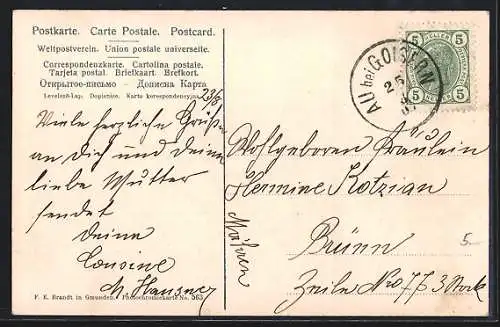 Postkarte. Carte Postale. Postcard.
Weltpostverein. Union postale universelle.
Correspondenzkarte. Cartolina postale.
Tarjeta postal. Briefkaart. Brefkort.
Открытое-письмо — Дописна Карта
Levelezö-Lap. Dopisnice. Karta korespondencyjna.
23/8
Viele herzliche Grüße
an dich und deine
liebe Mutter
sendet
deine
Cousine
M. Hausner
F. E. Brandt in Gmunden. Photochromiekarte No. 563
AU bei GOISERN
25
8
5 HELLER 5
5 5
Wohlgeboren Fräulein
Hermine Kotzian
Brünn
Zeile No 77 3 Stock
Mähren
5-